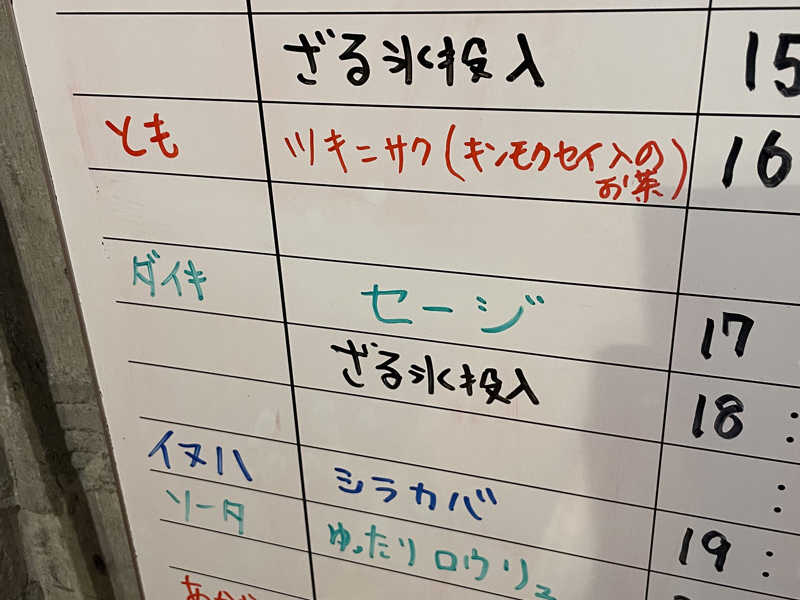 ざる氷投入 15
とも ツキニサク(キンモクセイ入の 16
お茶)
ダイキ セージ 17
ざる氷投入 18:
:
イヌハ シラカバ 19:
ソータ ゆったりロウリュ